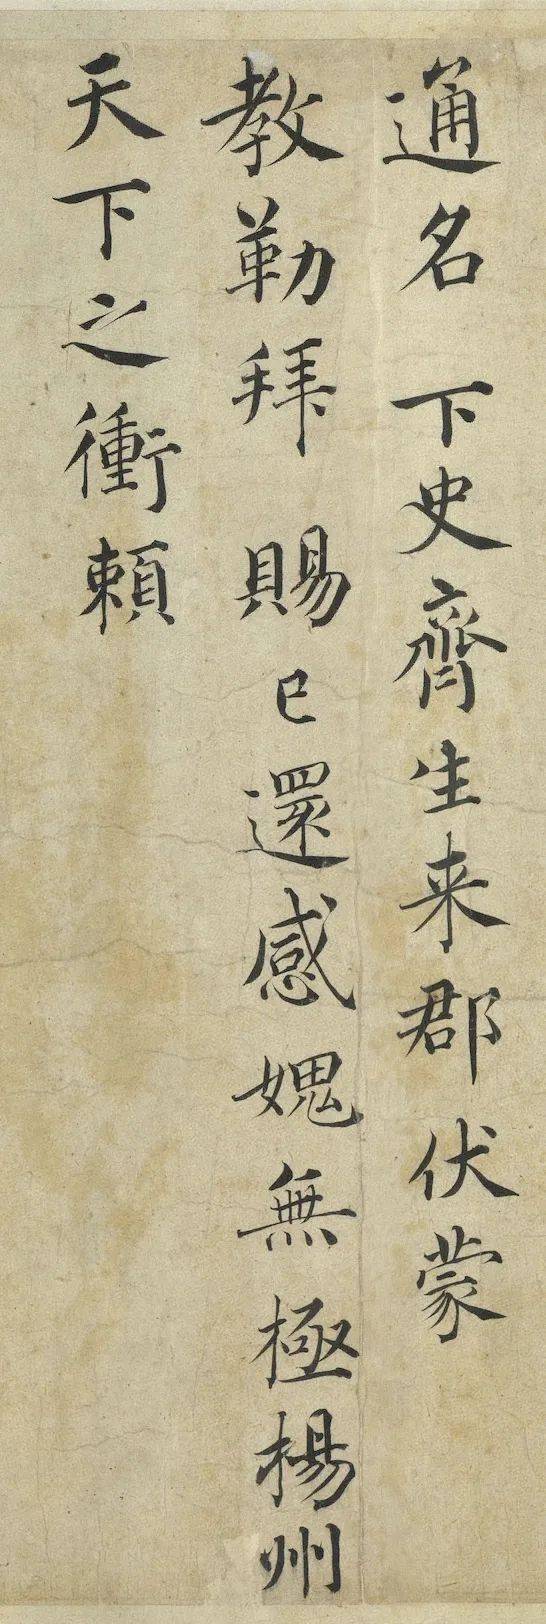 通名 下史齊生来郡伏蒙
教勒拜 賜已還感媿無極楊州
天下之衝頼